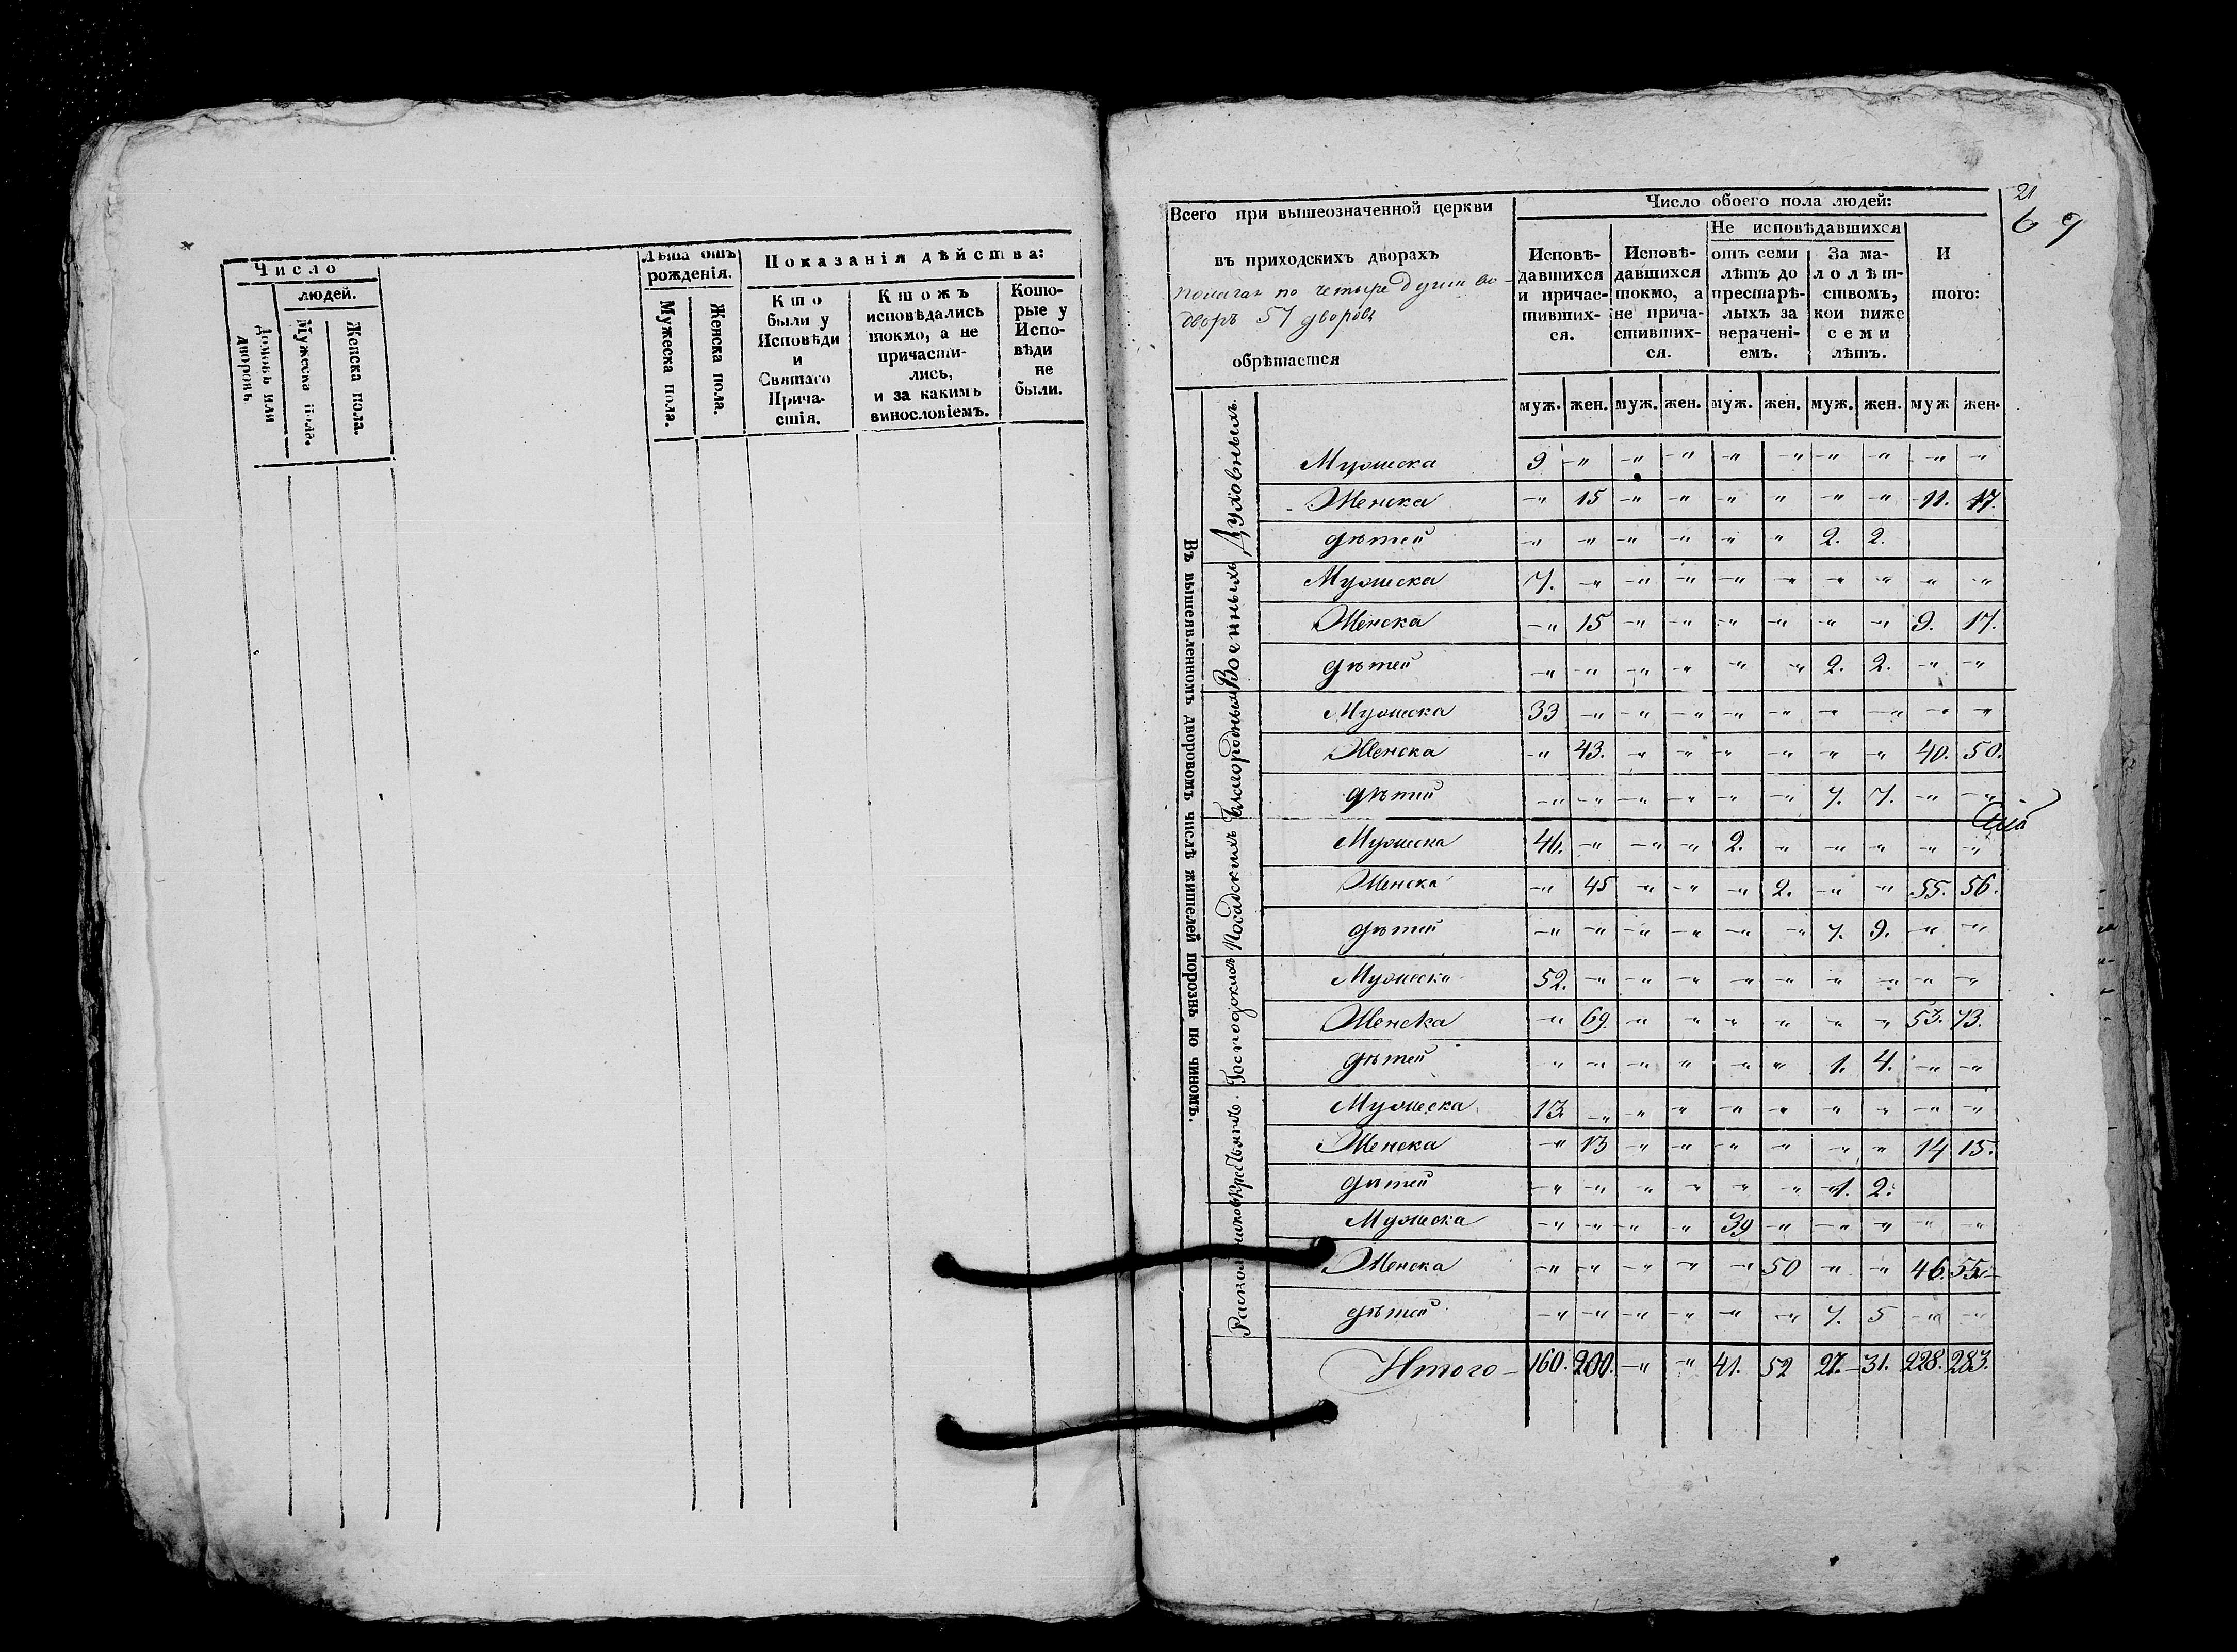 Число
людей.
Домовъ или дворовъ
Мужеска пола.
Женска пола.
Лѣта отъ
рожденія.
Мужеска пола.
Женска пола.
Показанія дѣйства:
Кто
были у
Исповѣди
и
Святаго
Прича-
стія.
Ктожъ
исповѣдались
токмо, а не
причасти-
лись,
и за какимъ
винословіемъ.
Кото-
рые у
Испо-
вѣди
не
были.
21
6 9
Всего при вышеозначенной церкви
въ приходскихъ дворахъ
полагая по четыре души во
дворъ 57 дворовъ
обрѣтается
Число обоего пола людей:
Исповѣ-
давшихся
и причас-
тивших-
ся.
Исповѣ-
давшихся
токмо, а
не прича-
стивших-
ся.
Не исповѣдавшихся
отъ семи
лѣтъ до
престарѣ-
лыхъ за
нерачені-
емъ.
За ма-
лолѣт-
ствомъ,
кои ниже
семи
лѣтъ.
И
того:
муж. жен. муж. жен. муж. жен. муж. жен. муж жен.
Въ вышеявленномъ дворовомъ числѣ жителей порознь по чиномъ.
Духовныхъ.
Мужеска 9 -" -" -" -" -" -" -" -" -"
Женска -" 15 -" -" -" " -" -" 11. 17.
дѣтей -" -" -" -" -" " 2. 2.
Военныхъ
Мужеска 7. -" -" -" -" -" -" -" -" -"
Женска -" 15 -" -" -" -" -" -" 9. 17.
дѣтей -" -" -" -" -" -" 2. 2. -" -"
Благородныхъ
Мужеска 33 -" -" -" -" -" -" -" -" -"
Женска -" 43. -" -" -" -" -" -" 40. 50.
дѣтей -" -" -" -" -" -" 7. 7. -" -"
Посадскихъ
Мужеска 46. -" -" -" 2. -" -" -" -" -"
Женска -" 45 -" -" -" 2. -" -" 55. 56.
дѣтей -" -" -" -" -" -" 7. 9. -" -"
Господскихъ
Мужеска 52. -" -" -" -" -" -" -" -" -"
Женска -" 69. -" -" -" -" -" -" 53. 73.
дѣтей -" -" -" -" -" -" 1. 4. -" -"
Крестьянъ.
Мужеска 13. -" -" -" -" -" -" -" -" -"
Женска -" 13 -" -" -" -" -" -" 14 15.
дѣтей -" -" -" -" -" -" 1. 2.
Раскольниковъ
Мужеска -" -" -" -" 39 -" -" -" -" -"
Женска -" -" -" -" -" 50 -" -" 46. 55.
дѣтей -" -" -" -" -" -" 7. 5 -" -"
Итого 160. 200. -" -" 41. 52 27. 31. 228. 283.